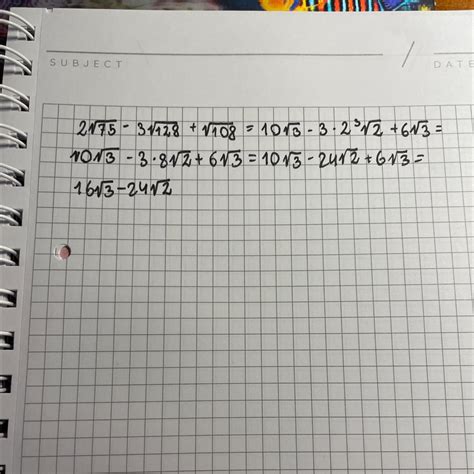 SUBJECT
DATE
2√75 - 3√128 + √108 = 10√3 - 3·2³√2 + 6√3 =
10√3 - 3·8√2 + 6√3 = 10√3 - 24√2 + 6√3 =
16√3 - 24√2